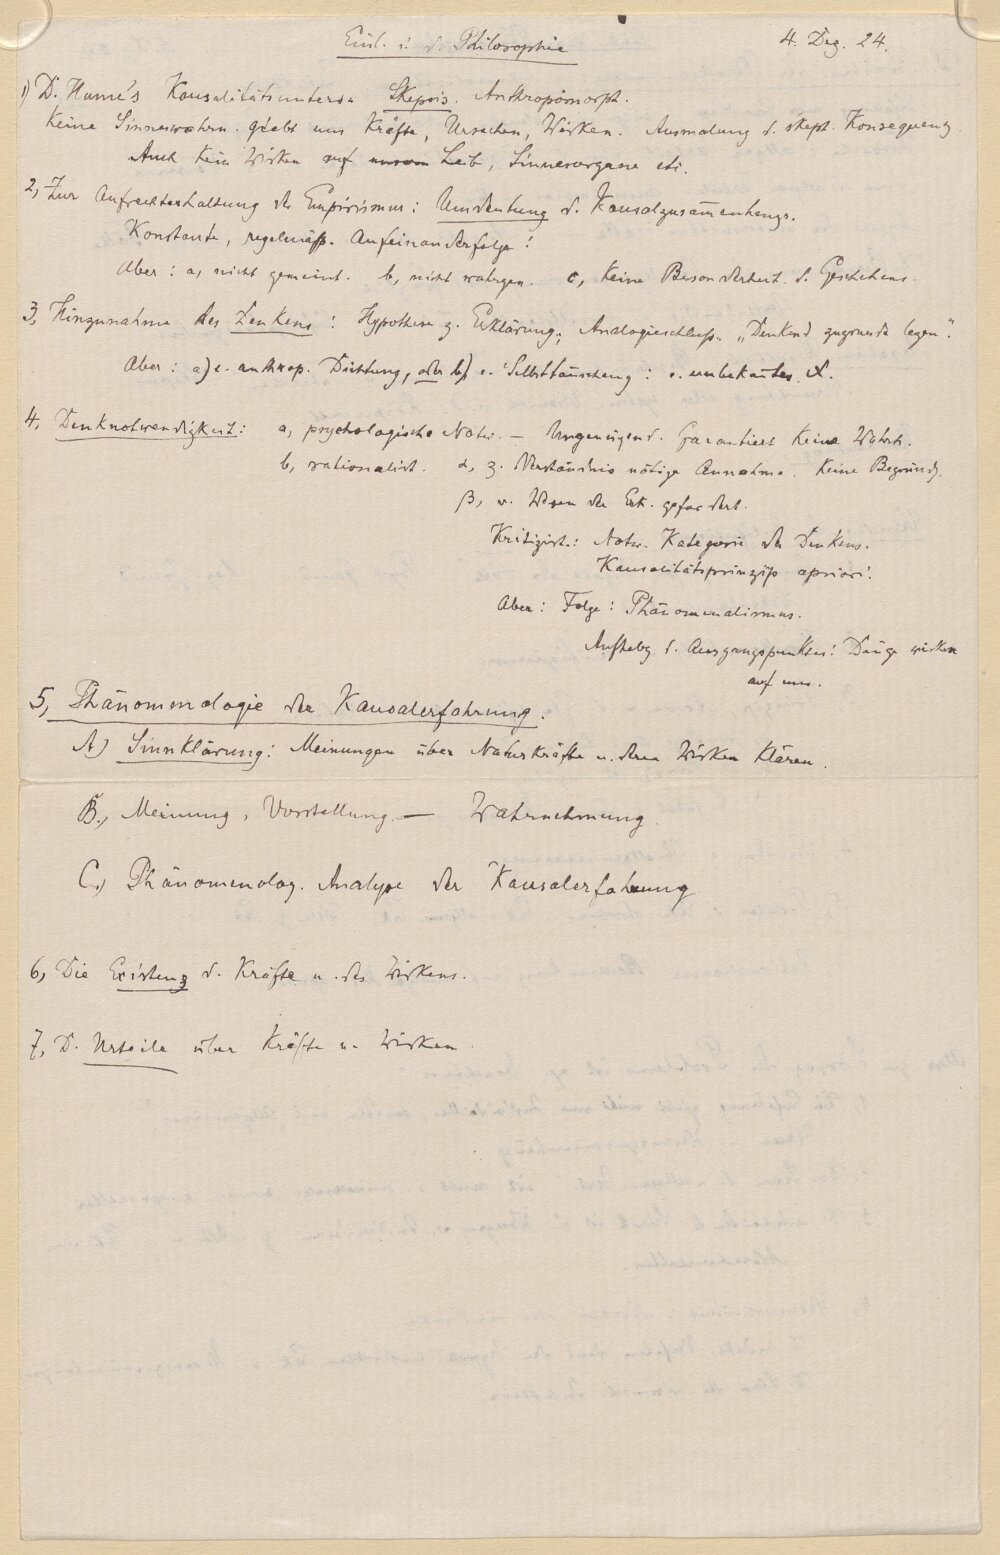 Einl. i. d. Philosophie 4. Dez. 24.
1) D. Hume's Kausalitätsunters. Skepsis. Anthropomorph.
Keine Sinneswahrn. giebt uns Kräfte, Ursachen, Wirken. Ausmalung d. skept. Konsequenz.
Auch kein Wirken auf unsern Leib, Sinnesorgane etc.
2, Zur Aufrechterhaltung des Empirismus: Umdeutung d. Kausalzusammenhangs.
Konstante, regelmäß. Aufeinanderfolge!
Aber: a, nicht gemeint. b, nicht wahrgen. c, keine Besonderheit d. Geschehens.
3, Hinzunahme des Denkens: Hypothese z. Erklärung; Analogieschluß. „Denkend zugrunde legen".
Aber: a) e. anthrop. Dichtung, oder b) e. Selbsttäuschung: e. unbekanntes X.
4, Denknotwendigkeit: a, psychologische Notw. – Ungenügend. Garantiert keine Wahrh.
b, rationalist. α, z. Verständnis nötige Annahme. Keine Begründg.
β, v. Wesen der Erk. gefordert.
Kritizist.: Notw. Kategorie des Denkens.
Kausalitätsprinzip apriori.
Aber: Folge: Phänomenalismus.
Aufhebg d. Ausgangspunktes: Dinge wirken
auf uns.
5, Phänomenologie der Kausalerfahrung.
A) Sinnklärung: Meinungen über Naturkräfte u. deren Wirken klären.
B., Meinung, Vorstellung – Wahrnehmung.
C.) Phänomenolog. Analyse der Kausalerfahrung
6, Die Existenz d. Kräfte u. des Wirkens.
7, D. Urteile über Kräfte u. Wirken.